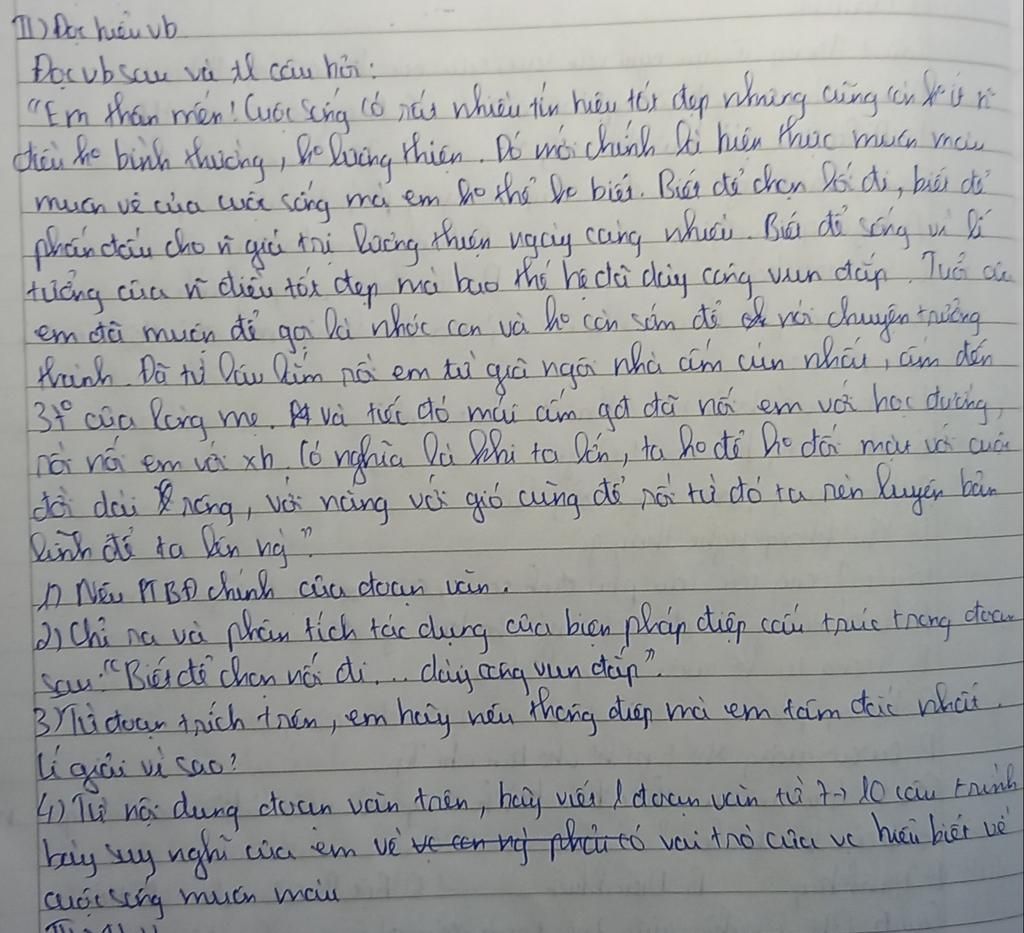 II) Đọc hiểu vb
Đọc vb sau và tl câu hỏi:
"Em thân mến! Cuộc sống có rất nhiều tín hiệu tốt đẹp nhưng cũng còn ko ít n~
điều ko bình thường, ko lương thiện. Đó mới chính là hiện thực muôn màu
muôn vẻ của cuộc sống mà em ko thể ko biết. Biết để chọn lối đi, biết để
phấn đấu cho n~ giá trị lương thiện ngày càng nhiều. Biết để sống vì lí
tưởng của n~ điều tốt đẹp mà bao thế hệ đã dày công vun đắp. Tuổi của
em đã muộn để gọi là nhóc con và ko còn sớm để nói chuyện trưởng
thành. Đã từ lâu lắm rồi em từ giã ngôi nhà ấm cúng nhất, ấm đến
37° của lòng mẹ. Và tiếc đó mái ấm gđ đã nối em với học đường,
rồi nối em với xh. Có nghĩa là khi ta lớn, ta ko để ko đối mặt với cuộc
đời dài rộng, với nắng với gió cũng để rồi từ đó ta rèn luyện bản
lĩnh để ta lớn ng".
1) Nêu PTBĐ chính của đoạn văn.
2) Chỉ ra và phân tích tác dụng của biện pháp điệp cấu trúc trong đoạn
sau: "Biết để chọn lối đi... dày công vun đắp".
3) Từ đoạn trích trên, em hãy nêu thông điệp mà em tâm đắc nhất.
Lí giải vì sao?
4) Từ nội dung đoạn văn trên, hãy viết 1 đoạn văn từ 7-> 10 câu trình
bày suy nghĩ của em về vai trò của vc hiểu biết về
cuộc sống muôn màu